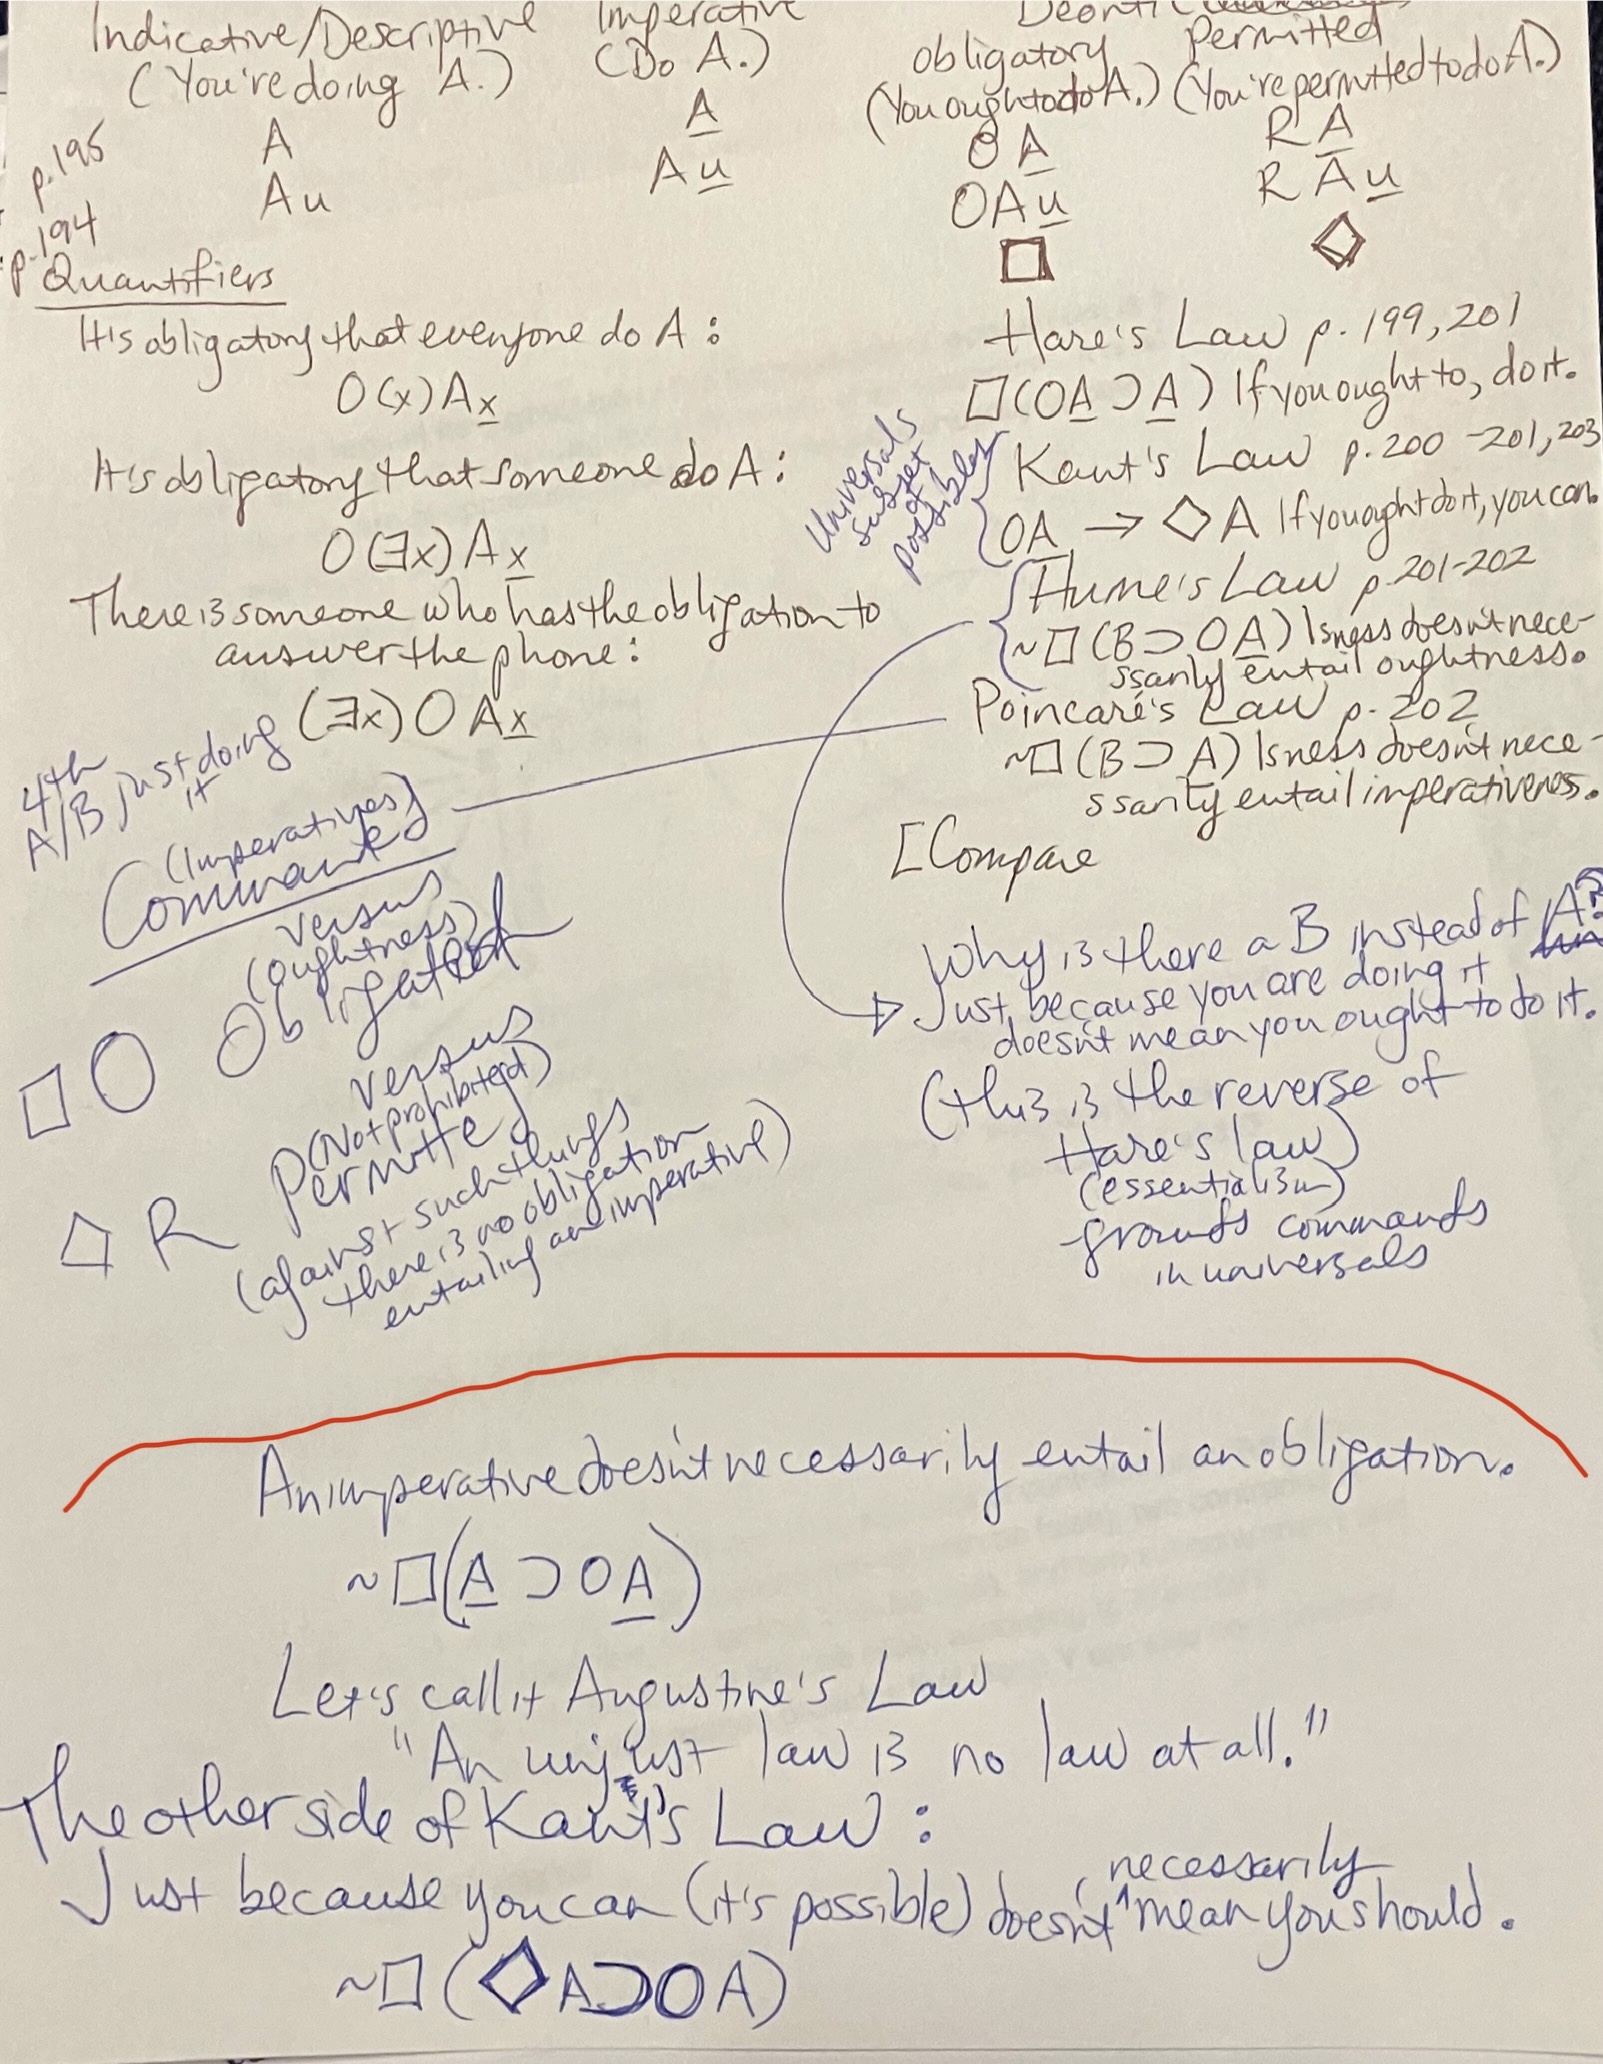 Indicative/Descriptive
(You're doing A.)
A
Au
p.195
p.194
Imperative
(Do A.)
A̲
Au̲
Deontic
obligatory
(You ought to do A.)
OA̲
OAu̲
□
Permitted
(You're permitted to do A.)
RA̲
RAu̲
◇
Quantifiers
It's obligatory that everyone do A:
O(x)Ax̲
It's obligatory that someone do A:
O(∃x)Ax̲
There is someone who has the obligation to
answer the phone:
(∃x)OAx̲
Hare's Law p. 199, 201
□(OA̲ ⊃ A̲) If you ought to, do it.
Universals
subset
of
possibles
Kant's Law p. 200-201, 203
OA̲ → ◇A If you ought do it, you can.
Hume's Law p. 201-202
~□(B ⊃ OA̲) Isness doesn't nece-
ssarily entail oughtness.
Poincaré's Law p. 202
~□(B ⊃ A̲) Isness doesn't nece-
ssarily entail imperativeness.
[Compare
4th
A/B just doing
it
(Imperatives)
Command
versus
(oughtness)
□ O Obligated
versus
(Not prohibited)
◇ R Permitted
(against such things
there is no obligation
entailing an imperative)
Why is there a B instead of A?
Just because you are doing it
doesn't mean you ought to do it.
(this is the reverse of
Hare's law)
(essentialism)
grounds commands
in universals
An imperative doesn't necessarily entail an obligation.
~□(A̲ ⊃ OA̲)
Let's call it Augustine's Law
"An unjust law is no law at all."
The other side of Kant's Law:
Just because you can (it's possible) doesn't necessarily mean you should.
~□(◇A ⊃ OA)